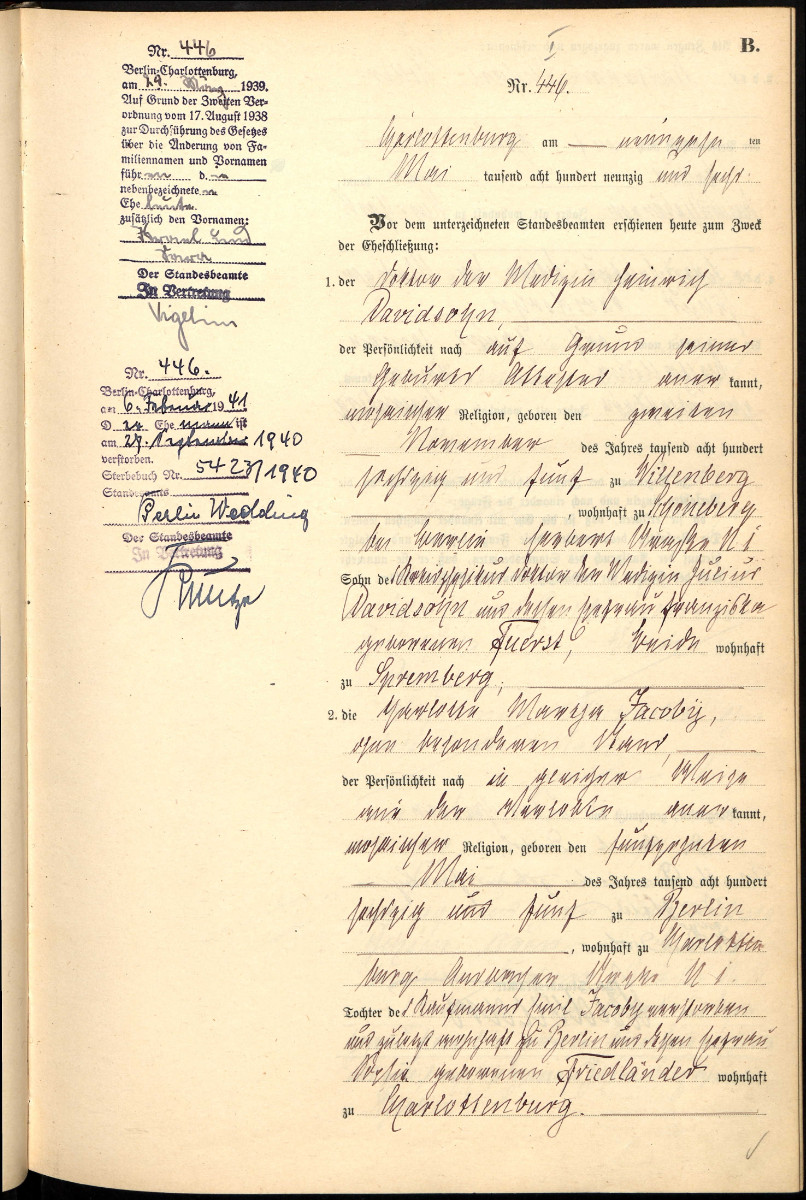 Nr. 446
Berlin-Charlottenburg,
am 29. März 1939.
Auf Grund der Zweiten Ver-
ordnung vom 17. August 1938
zur Durchführung des Gesetzes
über die Änderung von Fa-
miliennamen und Vornamen
führen d.
nebenbezeichneten
Eheleute
zusätzlich den Vornamen:
Israel und
Sara
Der Standesbeamte
In Vertretung
Nr. 446.
Berlin-Charlottenburg,
am 6. Februar 1941
D er Ehemann ist
am 27. September 1940
verstorben.
Sterbebuch Nr. 5423/1940
Standesamts
Berlin Wedding
Der Standesbeamte
In Vertretung
B.
Nr. 446.
Charlottenburg am neunzehn ten
Mai tausend acht hundert neunzig und sechs.
Vor dem unterzeichneten Standesbeamten erschienen heute zum Zweck
der Eheschließung:
1. der Doktor der Medizin Heinrich
Davidsohn,
der Persönlichkeit nach auf Grund seines
Geburts Attestes aner kannt,
mosaischer Religion, geboren den zweiten
November des Jahres tausend acht hundert
sechszig und fünf zu Willenberg
, wohnhaft zu Schöneberg
bei Berlin Straße N 1
Sohn des Kreisphysikus Doktor der Medizin Julius
Davidsohn und dessen Ehefrau Franziska
geborenen Fuerst, beide wohnhaft
zu Spremberg,
2. die Charlotte Martha Jacoby,
ohne besonderen Stand,
der Persönlichkeit nach in gleicher Weise
wie der Verlobte aner kannt,
mosaischer Religion, geboren den fünfzehnten
Mai des Jahres tausend acht hundert
sechszig und fünf zu Berlin
, wohnhaft zu Charlotten-
burg Ansbacher Straße N 1.
Tochter des Kaufmanns Emil Jacoby verstorben
und zuletzt wohnhaft zu Berlin und dessen Ehefrau
Sophie geborenen Friedländer wohnhaft
zu Charlottenburg.